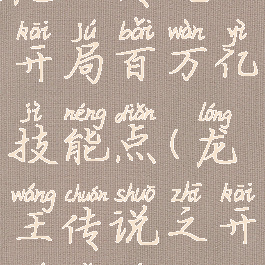 kāi jú bǎi wàn yì
开局百万亿
jì néng diǎn lóng
技能点(龙
wáng chuán shuō zhī kāi
王传说之开